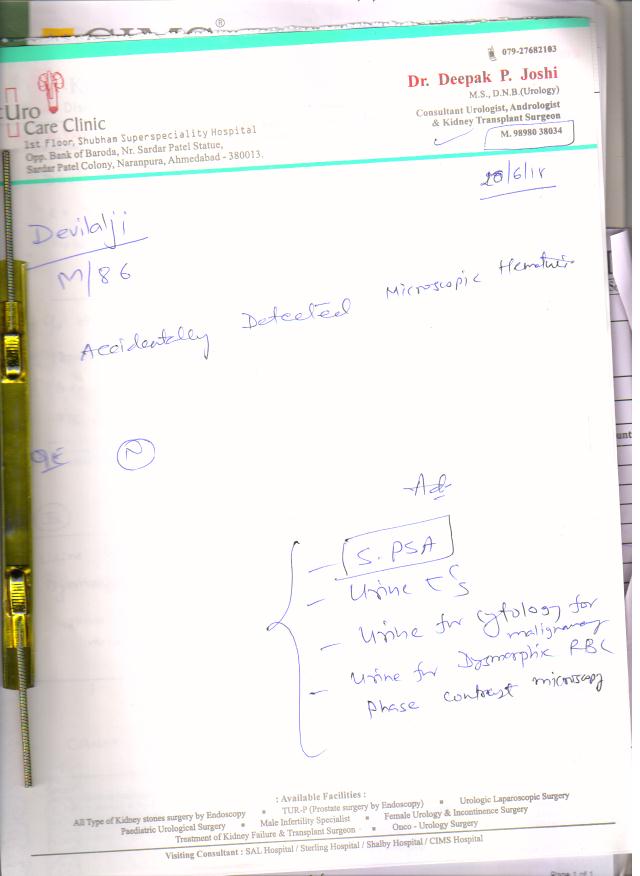 ®
079-27682103
Dr. Deepak P. Joshi
M.S., D.N.B.(Urology)
Consultant Urologist, Andrologist
& Kidney Transplant Surgeon
M. 98980 38034
Uro
Care Clinic
1st Floor, Shubham Superspeciality Hospital
Opp. Bank of Baroda, Nr. Sardar Patel Statue,
Sardar Patel Colony, Naranpura, Ahmedabad - 380013.
Devilalji
M/86
Accidentally Detected Microscopic
N
Ad
- S. PSA
- Urine
- Urine for cytology for
malignancy
- Urine for Dysmorphic RBC
phase contrast microscopy
: Available Facilities :
All Type of Kidney stones surgery by Endoscopy ▪ TUR-P (Prostate surgery by Endoscopy) ▪ Urologic Laparoscopic Surgery
Paediatric Urological Surgery ▪ Male Infertility Specialist ▪ Female Urology & Incontinence Surgery
Treatment of Kidney Failure & Transplant Surgeon ▪ Onco - Urology Surgery
Visiting Consultant : SAL Hospital / Sterling Hospital / Shalby Hospital / CIMS Hospital